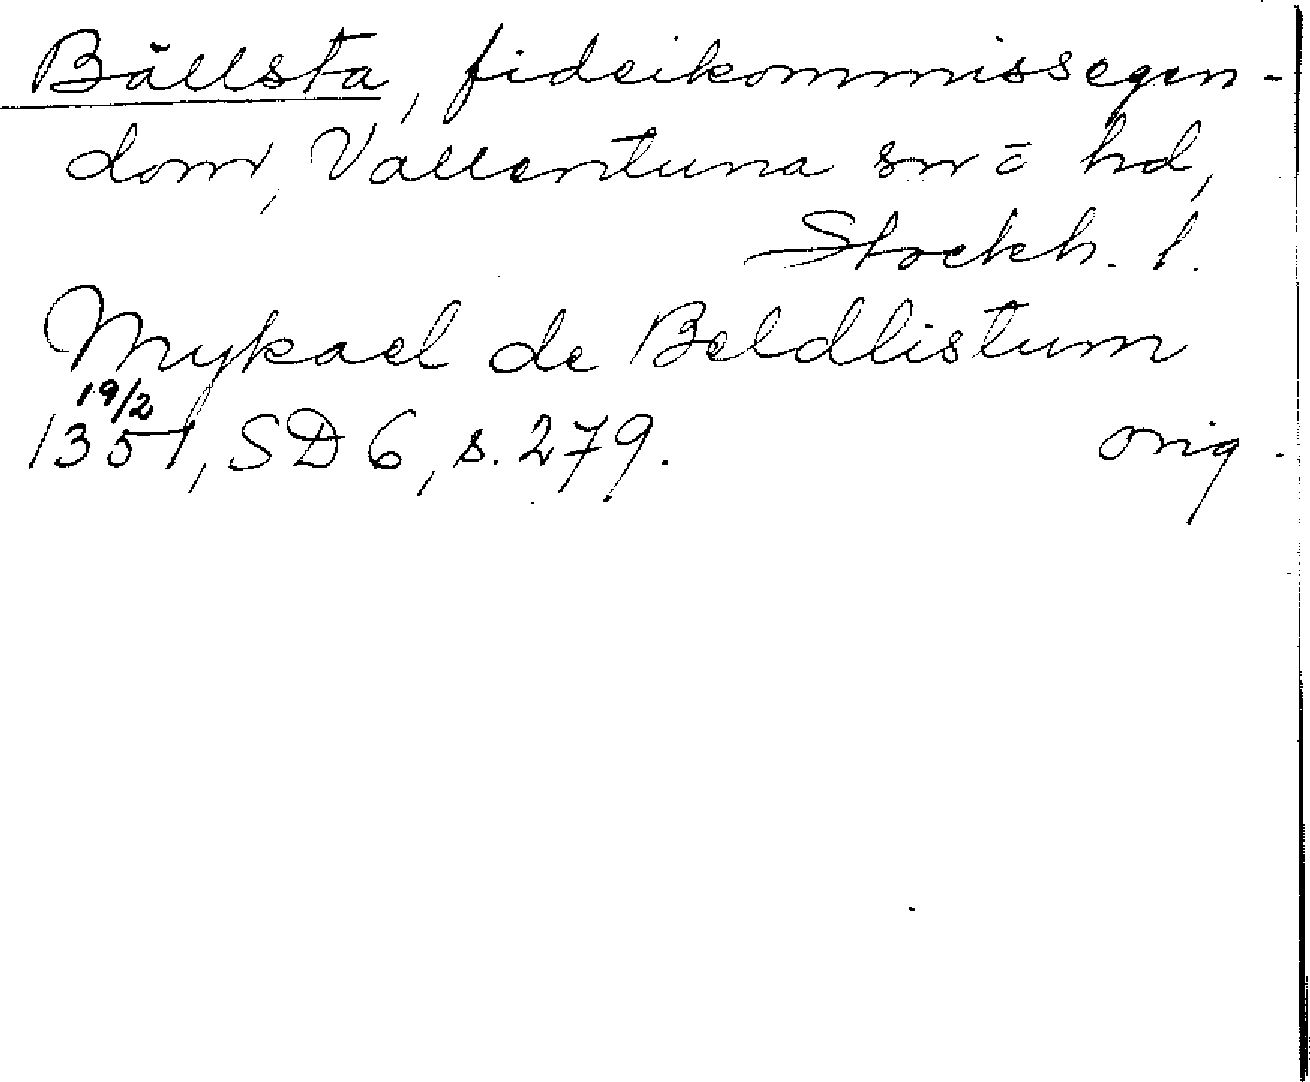 Bällsta, fideikommissegen-
dom, Vallentuna sn o hd,
Stockh. l.
Mykael de Beldlistum
19/2
1351, SD 6, s. 279. orig.